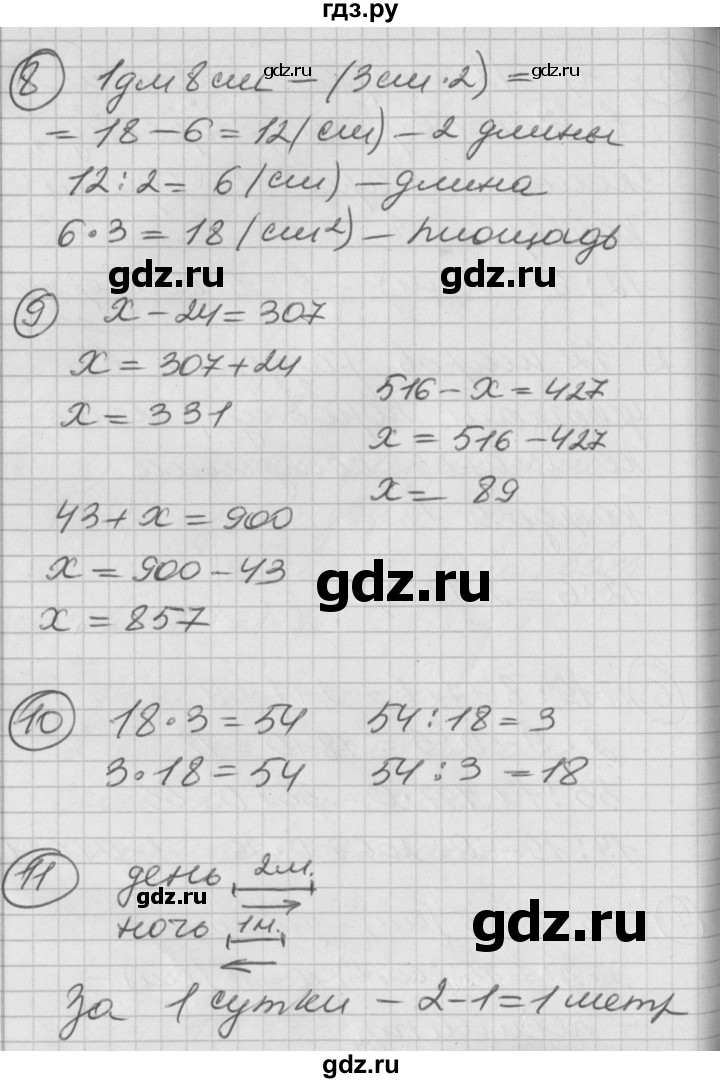 гдз.ру
8 1дм 8см - (3см · 2) =
= 18 - 6 = 12 (см) - 2 длины
12 : 2 = 6 (см) - длина
6 · 3 = 18 (см²) - площадь
9 x - 24 = 307
x = 307 + 24
x = 331
516 - x = 427
x = 516 - 427
x = 89
43 + x = 900
x = 900 - 43
x = 857
10 18 · 3 = 54 54 : 18 = 3
3 · 18 = 54 54 : 3 = 18
11 день 2м.
ночь 1м.
За 1 сутки - 2 - 1 = 1 метр
gdz.ru
gdz.ru
gdz.ru
gdz.ru
gdz.ru
gdz.ru
gdz.ru
gdz.ru